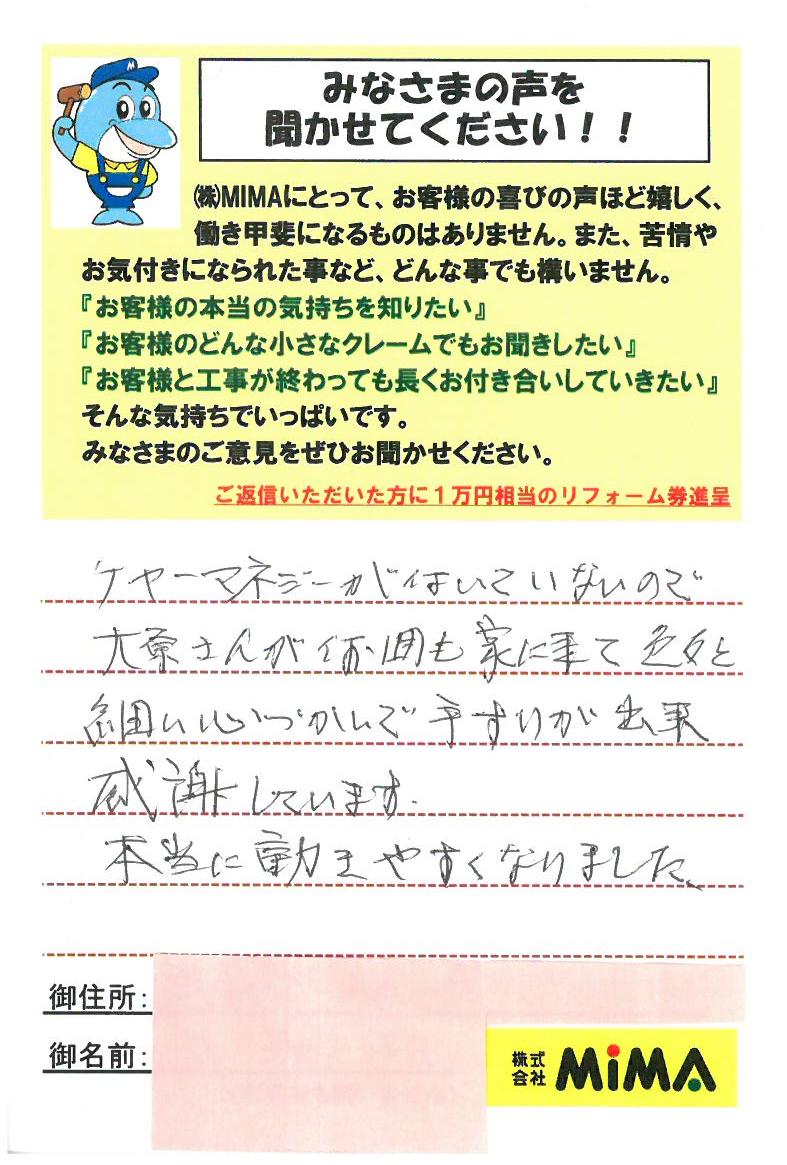 みなさまの声を
聞かせてください！！
㈱MIMAにとって、お客様の喜びの声ほど嬉しく、
働き甲斐になるものはありません。また、苦情や
お気付きになられた事など、どんな事でも構いません。
『お客様の本当の気持ちを知りたい』
『お客様のどんな小さなクレームでもお聞きしたい』
『お客様と工事が終わっても長くお付き合いしていきたい』
そんな気持ちでいっぱいです。
みなさまのご意見をぜひお聞かせください。
ご返信いただいた方に１万円相当のリフォーム券進呈
ケヤーマネジーがはいていないので
大原さんが何回も家に来て色々と
細い心づかいで手すりが出来
感謝しています.
本当に動きやすくなりました、
御住所:
御名前:
株式会社 MiMA
M